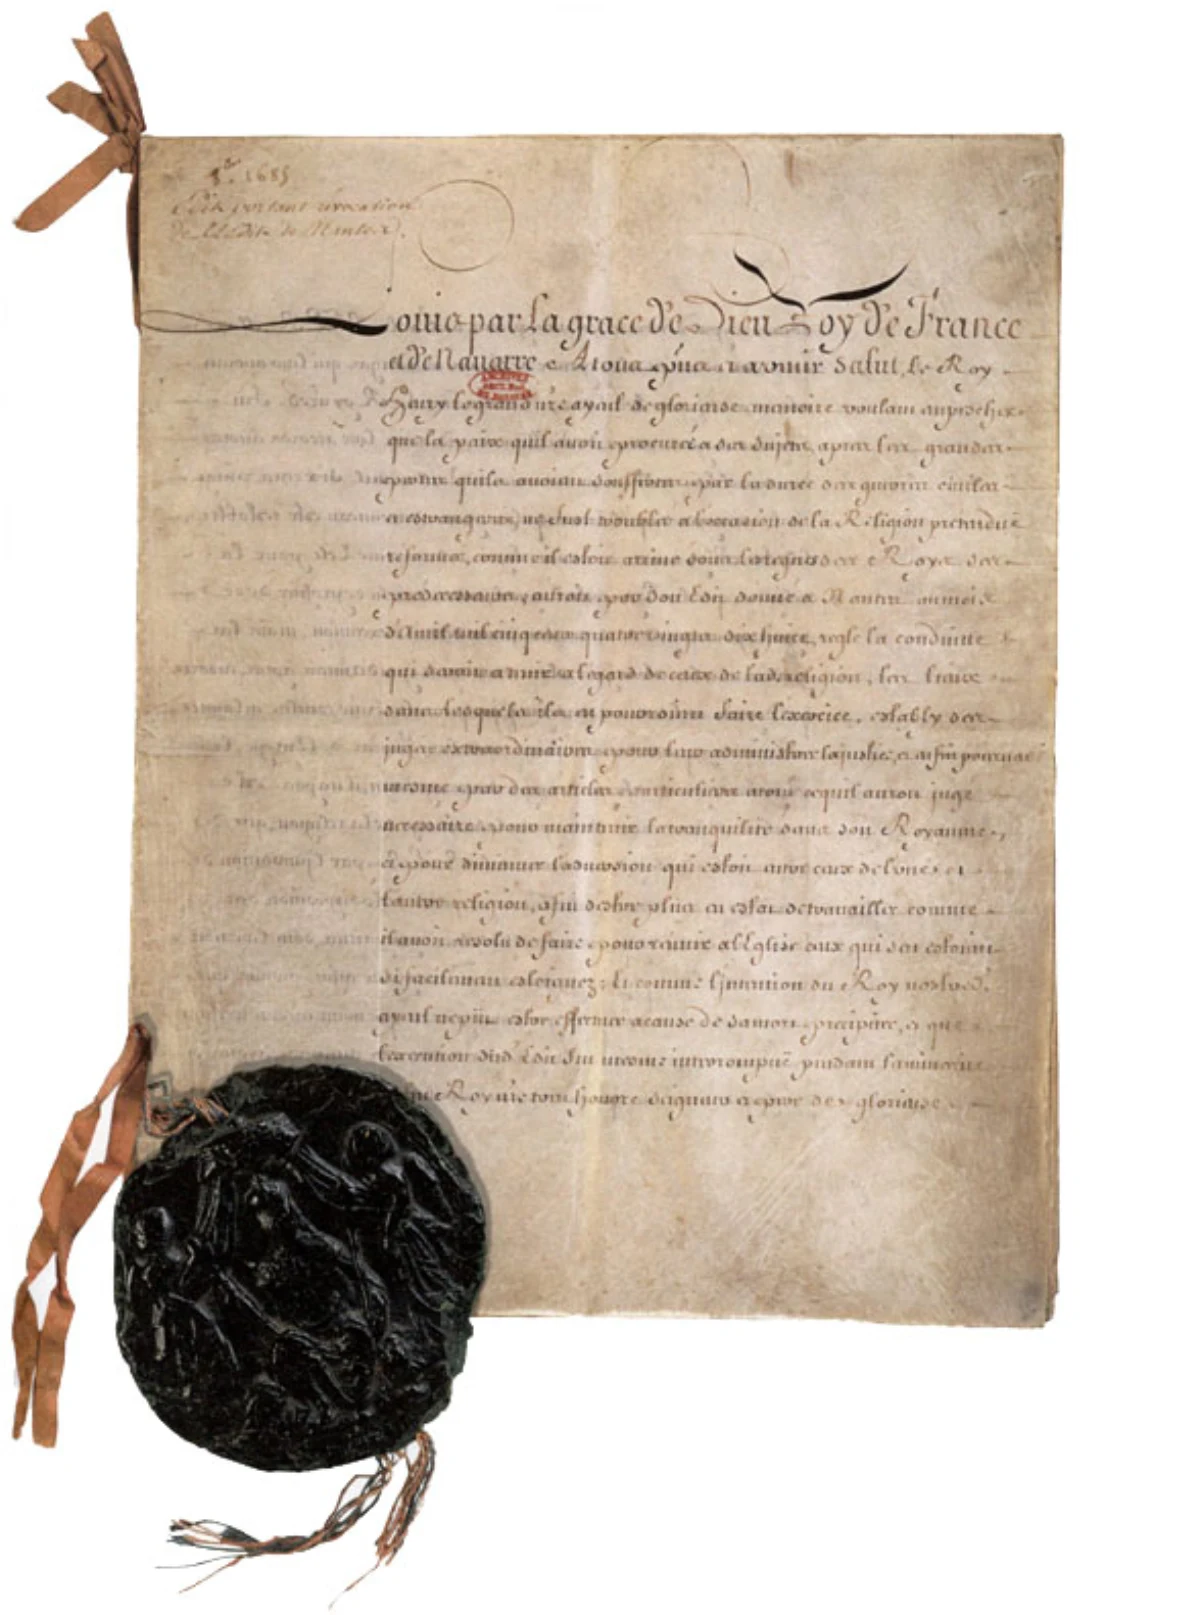 8bre 1685
Edit portant révocation
de l'Edit de Nantes.
Louis par la grace de Dieu Roy de France
et de Nauarre A tous pns et a venir Salut, le Roy
ARCHIVES
Henry le grand nre ayeul de glorieuse memoire voulant empescher
que la paix quil auoit procurée a ses sujets, apres les grandes
pertes quils auoient souffertes par la durée des guerres ciuiles
et estrangeres, ne fust troublée a l'occasion de la Religion pretendue
reformée, comme il estoit arriué sous les regnes des Roys ses
predecesseurs, auroit par son Edit donné a Nantes au mois
d'Auril mil cinq cens quatre vingts dix huict, reglé la conduitte
qui deuoit a tenir a l'egard de ceux de lad. religion, les lieux
dans lesquels ils en pouroient faire l'exercice, estably des
juges extraordinaires pour leur administrer la justice, et enfin pourueu
mesme par des articles particuliers a tout ce quil auroit jugé
necessaire pour maintenir la tranquilité dans son Royaume,
et pour diminuer l'aduersion qui estoit entre ceux de l'vne et
l'autre religion, afin d'estre plus en estat de trauailler comme
il auoit resolu de faire pour reünir a l'Eglise ceux qui s'en estoient
si facilement esloignez; Et comme l'intention du Roy nostred.
ayeul ne pût estre effectuée a cause de sa mort precipitée, et que
l'execution dud. Edit fut mesme interrompuë pendant la minorité
Roy nre tres honoré seigneur et pere de glorieuse